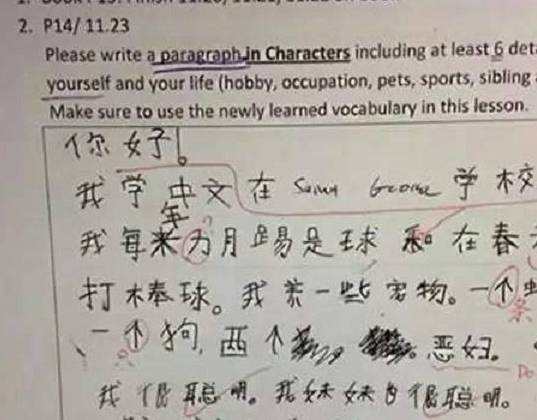 2. P14/ 11.23
Please write a paragraph in Characters including at least 6 det
yourself and your life (hobby, occupation, pets, sports, sibling
Make sure to use the newly learned vocabulary in this lesson.
你好。
我学中文在 George 学校
年
我每 月踢是球和在春
打棒球。我养一些宠物。一个
条
一个狗，两个
我很聪明。我妹妹 很聪明。